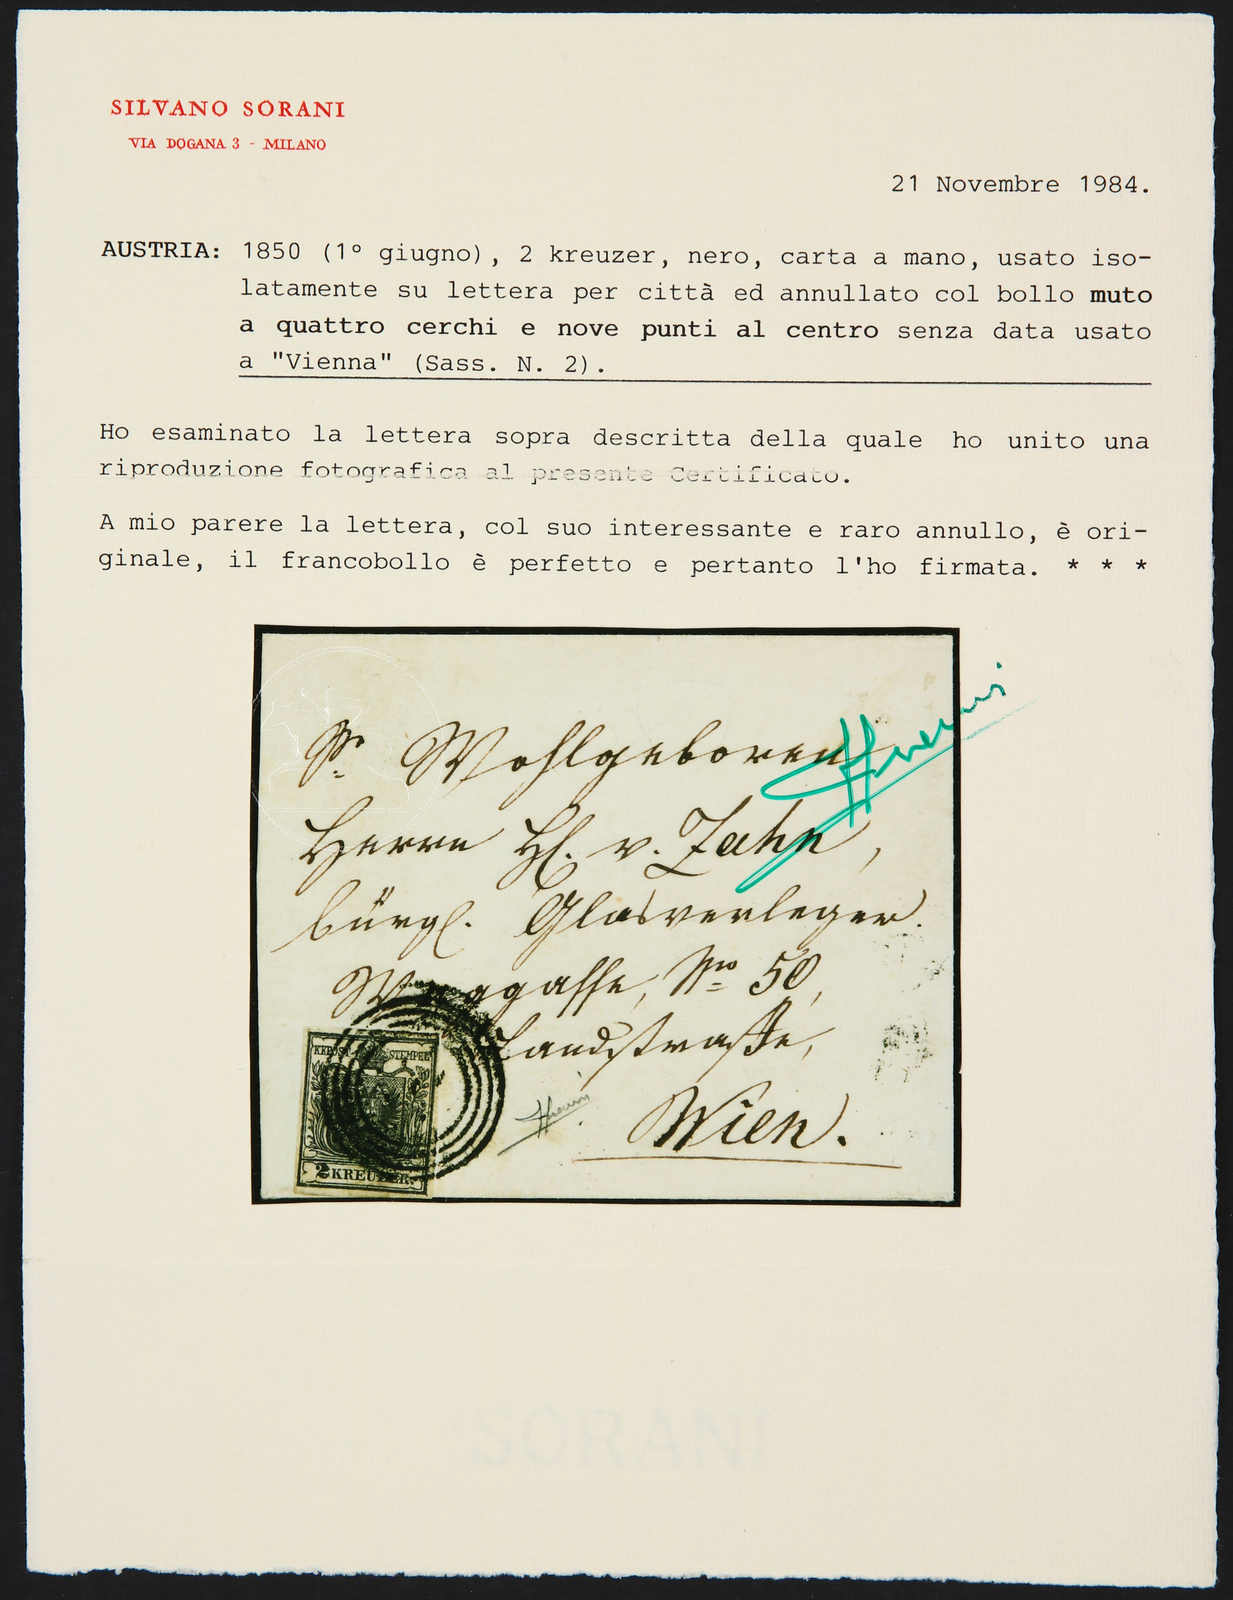 SILVANO SORANI
VIA DOGANA 3 - MILANO
21 Novembre 1984.
AUSTRIA: 1850 (1° giugno), 2 kreuzer, nero, carta a mano, usato iso-
latamente su lettera per città ed annullato col bollo muto
a quattro cerchi e nove punti al centro senza data usato
a "Vienna" (Sass. N. 2).
Ho esaminato la lettera sopra descritta della quale ho unito una
riproduzione fotografica al presente Certificato.
A mio parere la lettera, col suo interessante e raro annullo, è ori-
ginale, il francobollo è perfetto e pertanto l'ho firmata. * * *
Sr. Wohlgeboren
Herrn H. v. Zahn,
bürgl. Glasverleger.
No 50,
Landstraße,
Wien.
STEMPEL
2 KREUZER.
SORANI